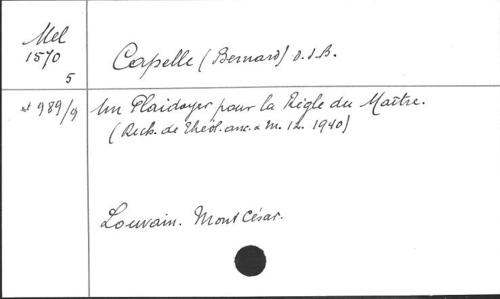 Mel
1570
5
Capelle (Bernard) O.S.B.
989/9
Un Plaidoyer pour la Règle du Maître.
(Rech. de Théol. anc. & m. 12. 1940)
Louvain. Mont César.